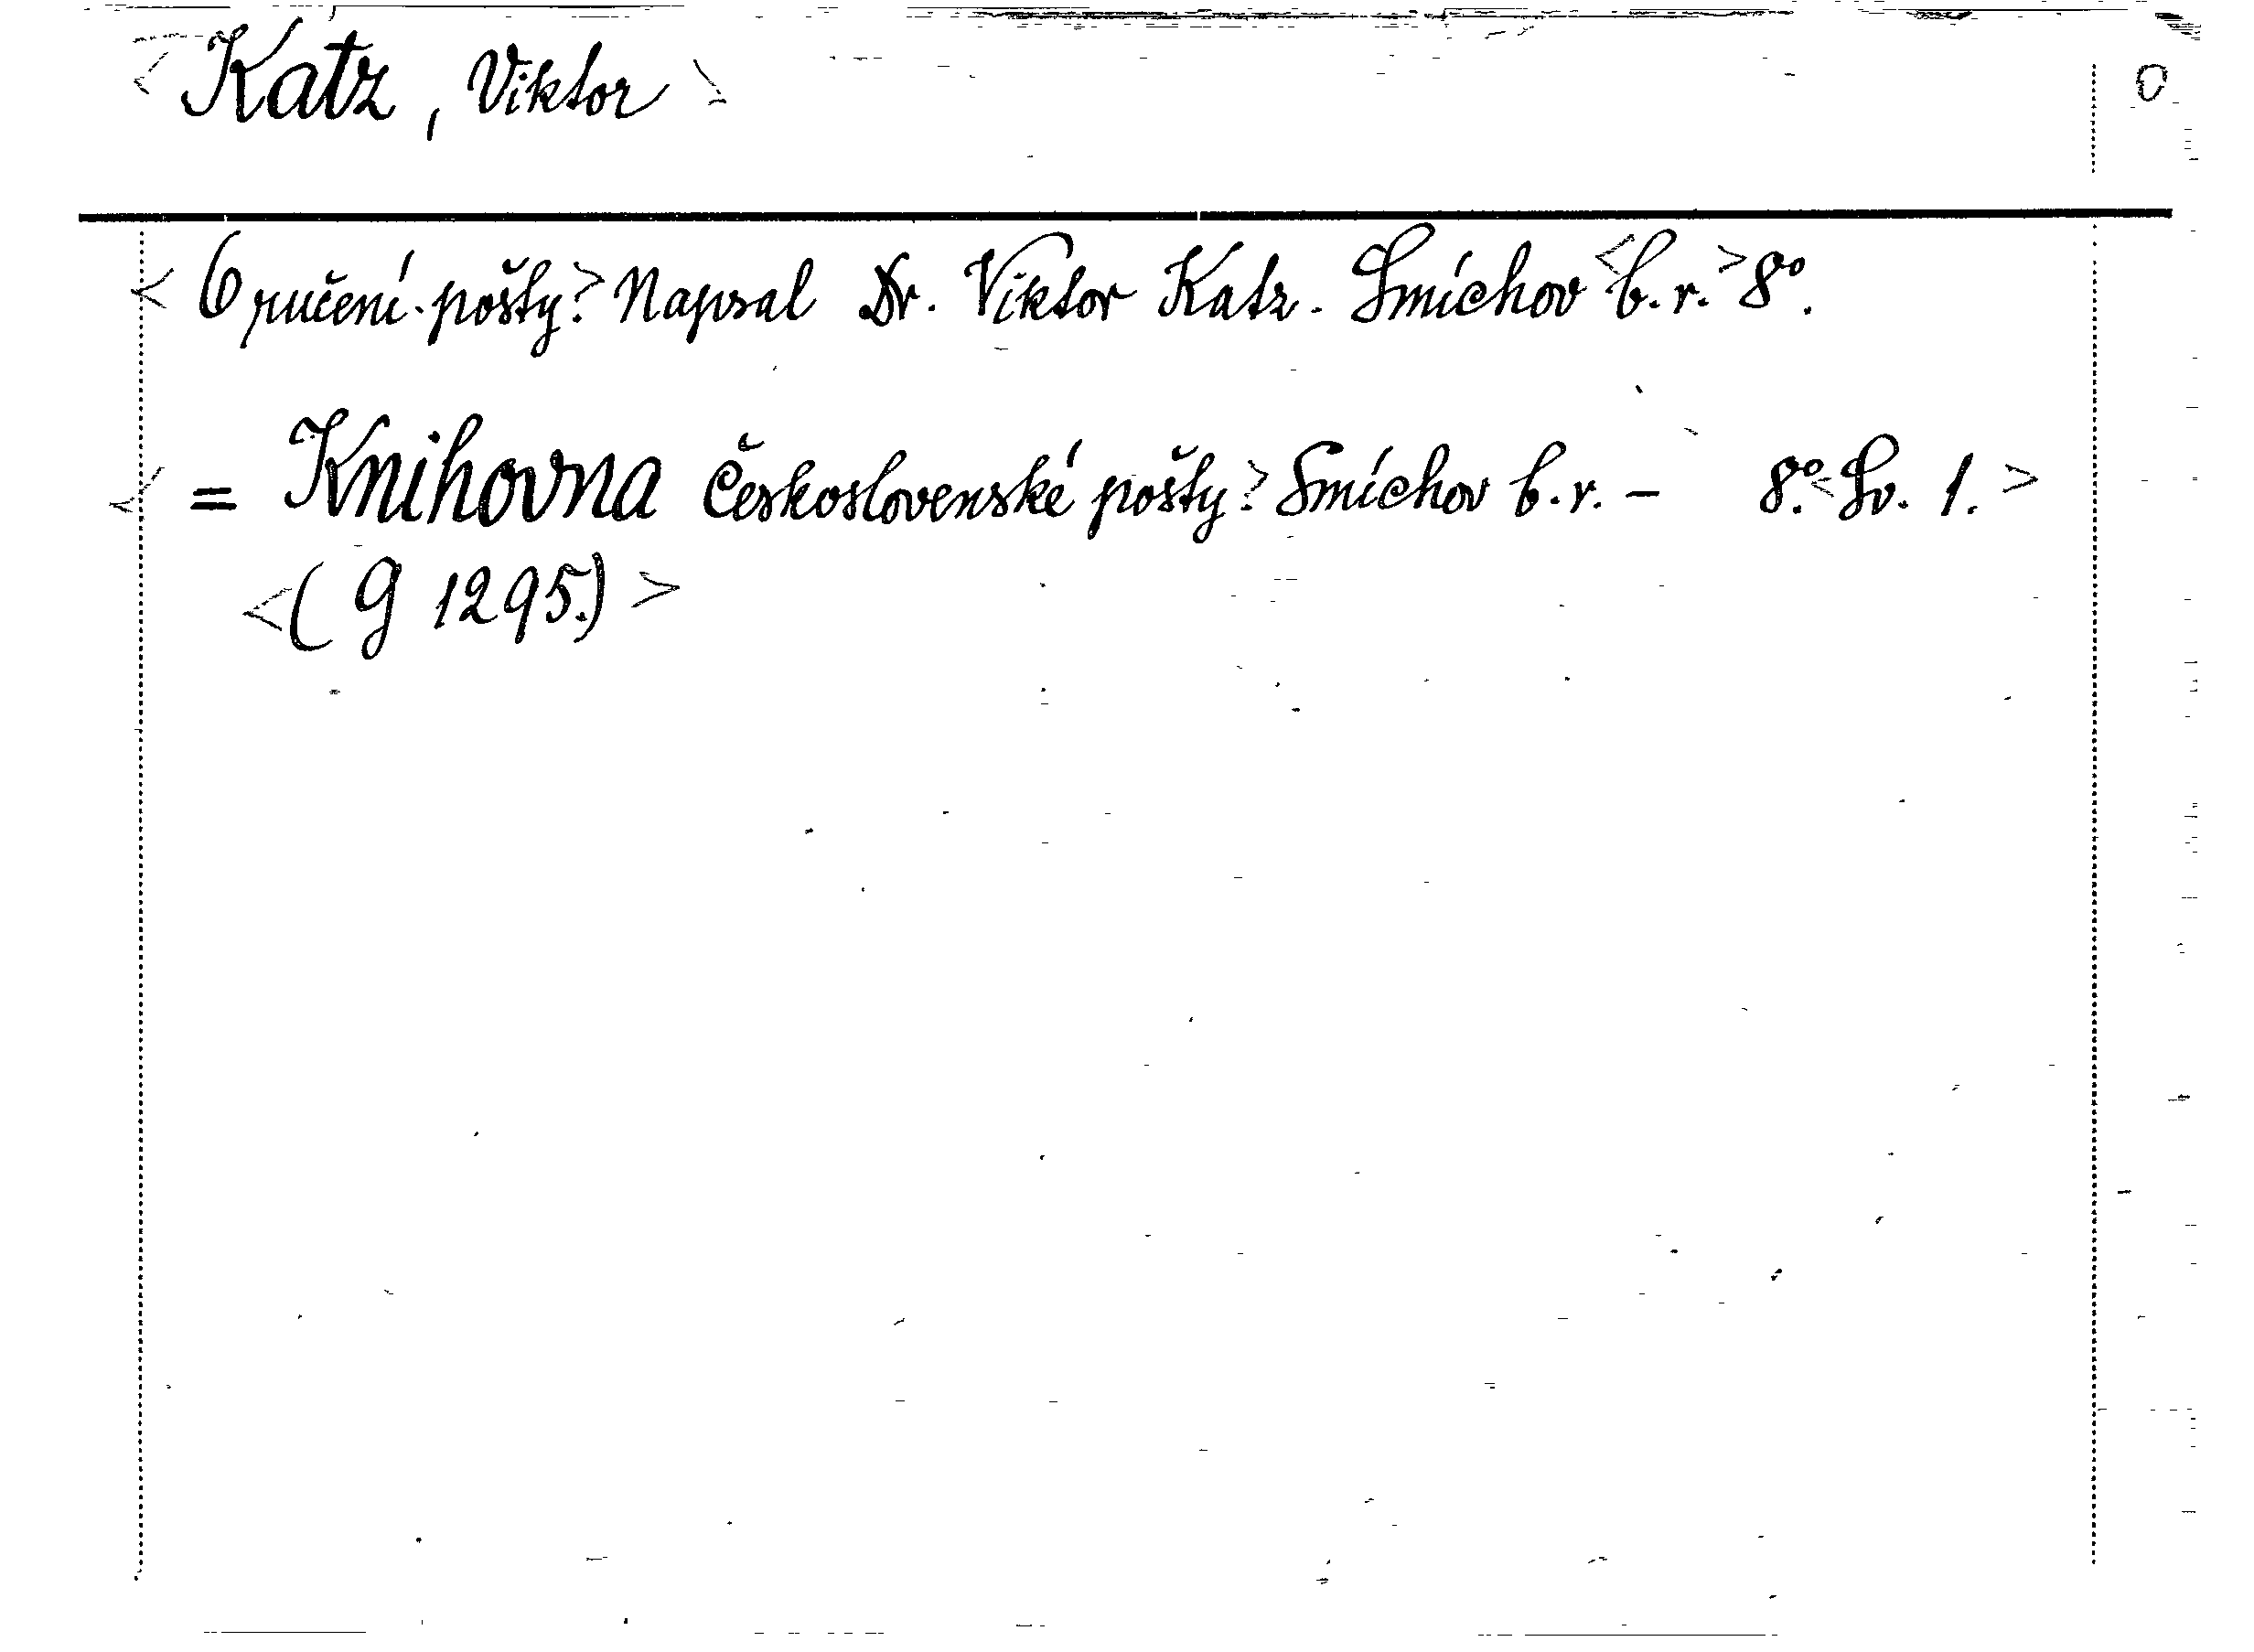 <Katz, Viktor> 0
<O ručení pošty.> Napsal Dr. Viktor Katz. Smíchov <b. r.> 8°.
<= Knihovna Československé pošty.> Smíchov b. r. – 8°. <Sv. 1.>
<(G 1295.)>